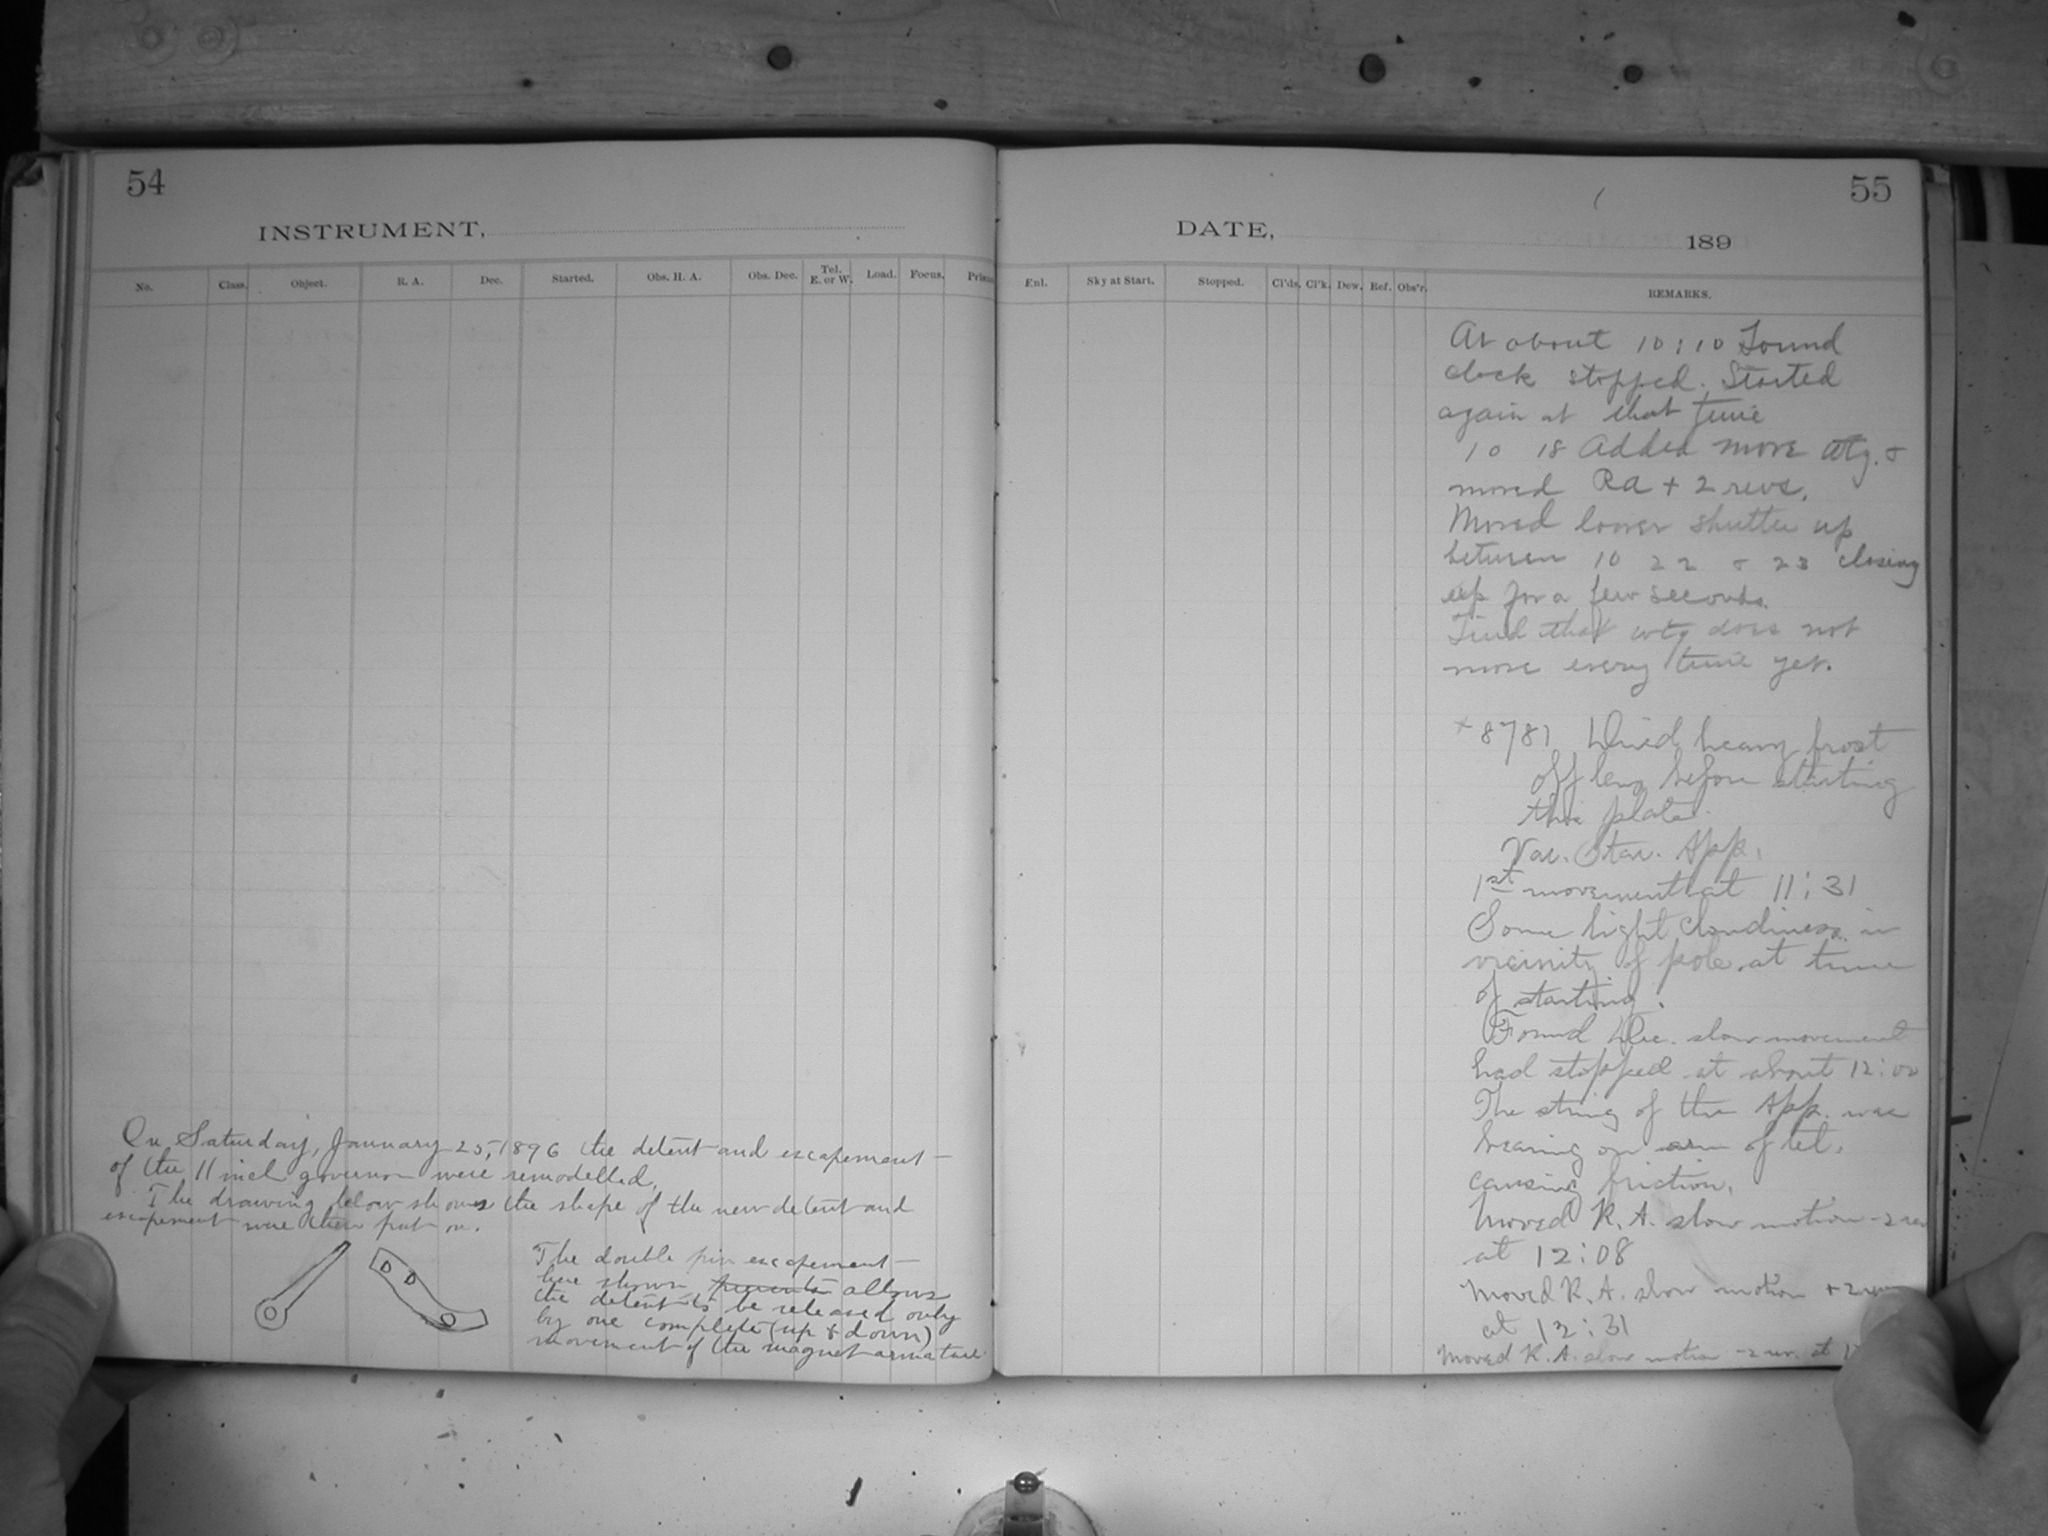 54
INSTRUMENT,
No. Class. Object. R. A. Dec. Started. Obs. H. A. Obs. Dec. Tel. E. or W. Load. Focus.
On Saturday, January 25, 1896 the detent and escapement
of the 11 inch governor were remodelled.
The drawing below shows the shape of the new detent and
escapement were then put on.
The double pin escapement
here shown allows
the detent to be released only
by one complete (up & down)
movement of the magnet armature.
55
DATE, 189
Enl. Sky at Start. Stopped. Cl'ds. Cl'k. Dew. Ref. Obs'r. REMARKS.
At about 10:10 Found
clock stopped. Started
again at that time
10 18 Added more wtg. &
moved RA + 2 revs.
Moved lower shutter up
between 10 22 & 23 closing
up for a few seconds.
Find that wtg does not
move every time yet.
+ 8781 Dried heavy frost
off lens before starting
this plate.
Var. Star. App.
1st movement at 11:31
Some light cloudiness in
vicinity of pole at time
of starting.
Found Dec. slow movement
had stopped at about 12:00
The string of the App. was
bearing on arm of tel.
causing friction.
Moved R. A. slow motion -2 rev
at 12:08
Moved R. A. slow motion +2
at 12:31
Moved R. A. slow motion -2 rev. at